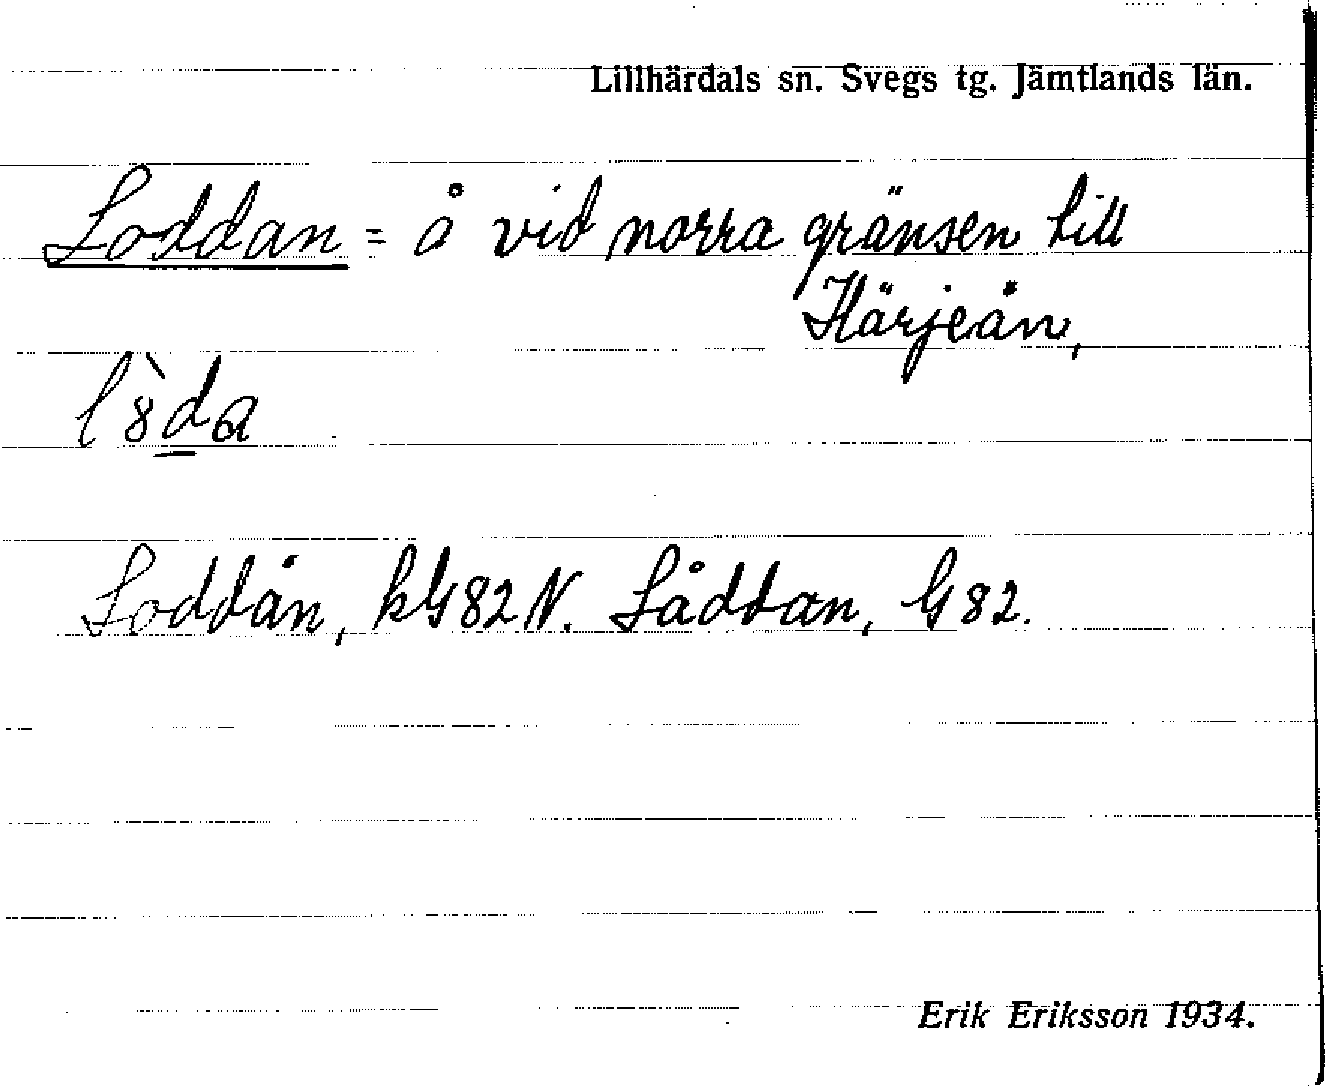 Lillhärdals sn. Svegs tg. Jämtlands län.
Loddan = å vid norra gränsen till
Härjeån,
l8̀da
Loddån, kG82N. Låddan, G82.
Erik Eriksson 1934.